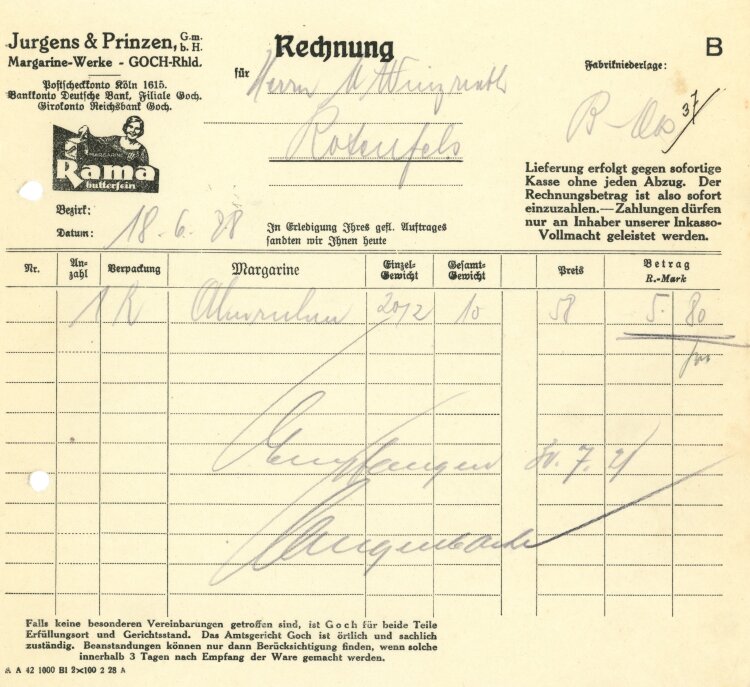 Jurgens & Prinzen, G.m.b.H.
Margarine-Werke - GOCH-Rhld.
Postscheckkonto Köln 1615.
Bankkonto Deutsche Bank, Filiale Goch.
Girokonto Reichsbank Goch.
MARGARINE
Rama
butterfein
Rechnung
für Herrn
Rotenfels
B
Fabrikniederlage:
37
Lieferung erfolgt gegen sofortige
Kasse ohne jeden Abzug. Der
Rechnungsbetrag ist also sofort
einzuzahlen.— Zahlungen dürfen
nur an Inhaber unserer Inkasso-
Vollmacht geleistet werden.
Bezirk:
Datum: 18.6.28
In Erledigung Ihres gefl. Auftrages
sandten wir Ihnen heute
Nr. An-zahl Verpackung Margarine Einzel-Gewicht Gesamt-Gewicht Preis Betrag R.-Mark
1 K 20/2 10 58 5. 80
Empfangen
Langenbach
Falls keine besonderen Vereinbarungen getroffen sind, ist Goch für beide Teile
Erfüllungsort und Gerichtsstand. Das Amtsgericht Goch ist örtlich und sachlich
zuständig. Beanstandungen können nur dann Berücksichtigung finden, wenn solche
innerhalb 3 Tagen nach Empfang der Ware gemacht werden.
A A 42 1000 Bl 2×100 2 28 A